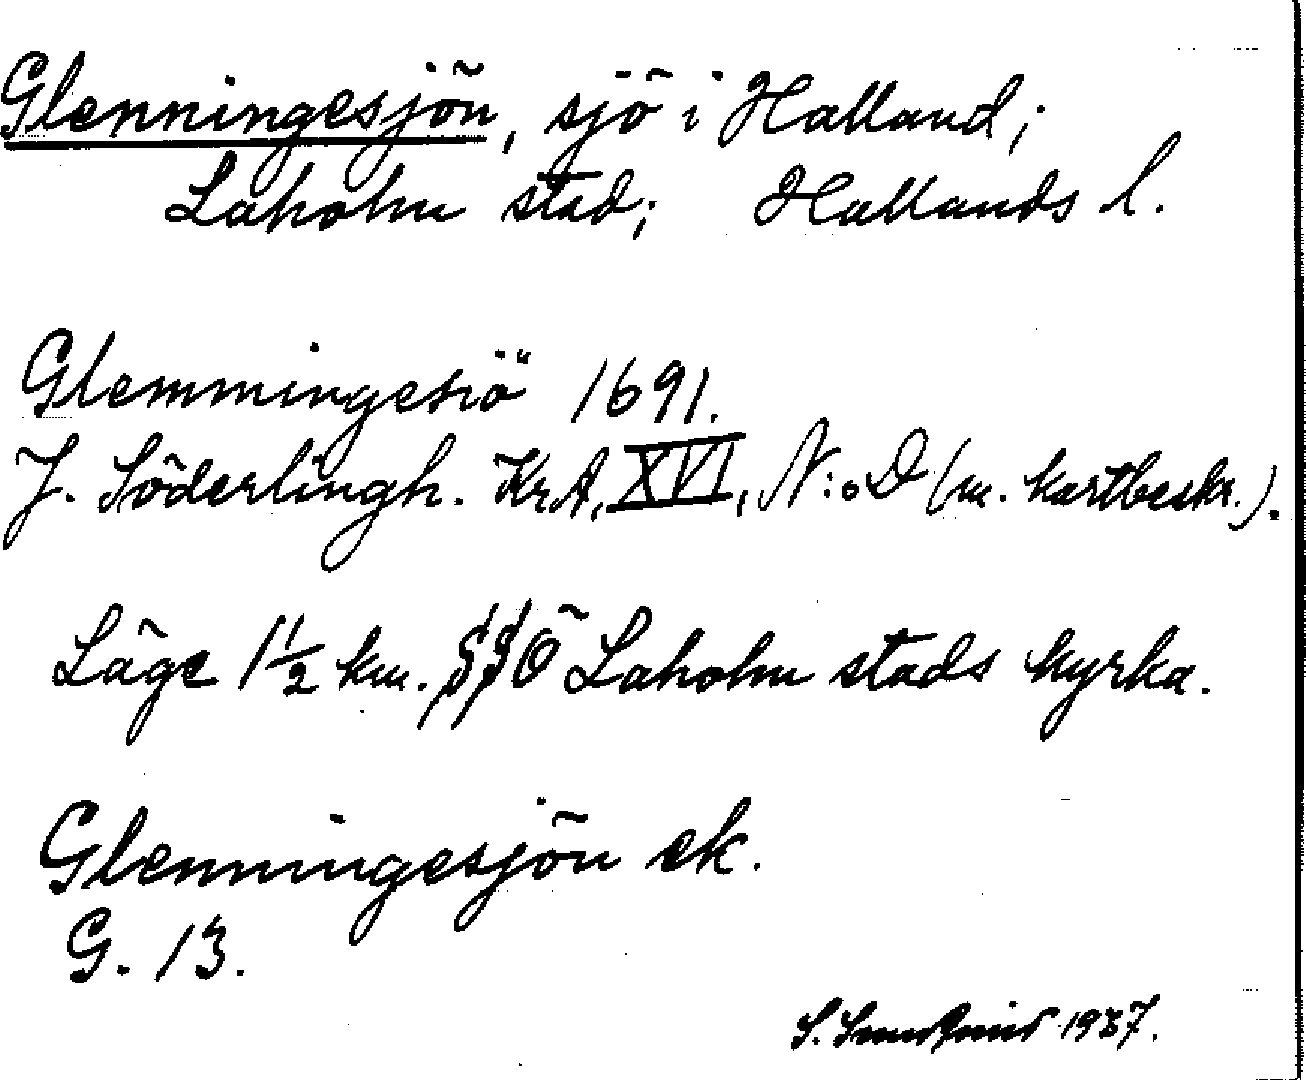 Glenningesjön, sjö i Halland;
Laholm stad; Hallands l.
Glemmingesiö 1691.
J. Söderlingh. KrA, XVI, N:o D (m. kartbeskr.).
Läge 1 1/2 km. SSÖ Laholm stads kyrka.
Glenningesjön ek.
G. 13.
S. 1937.